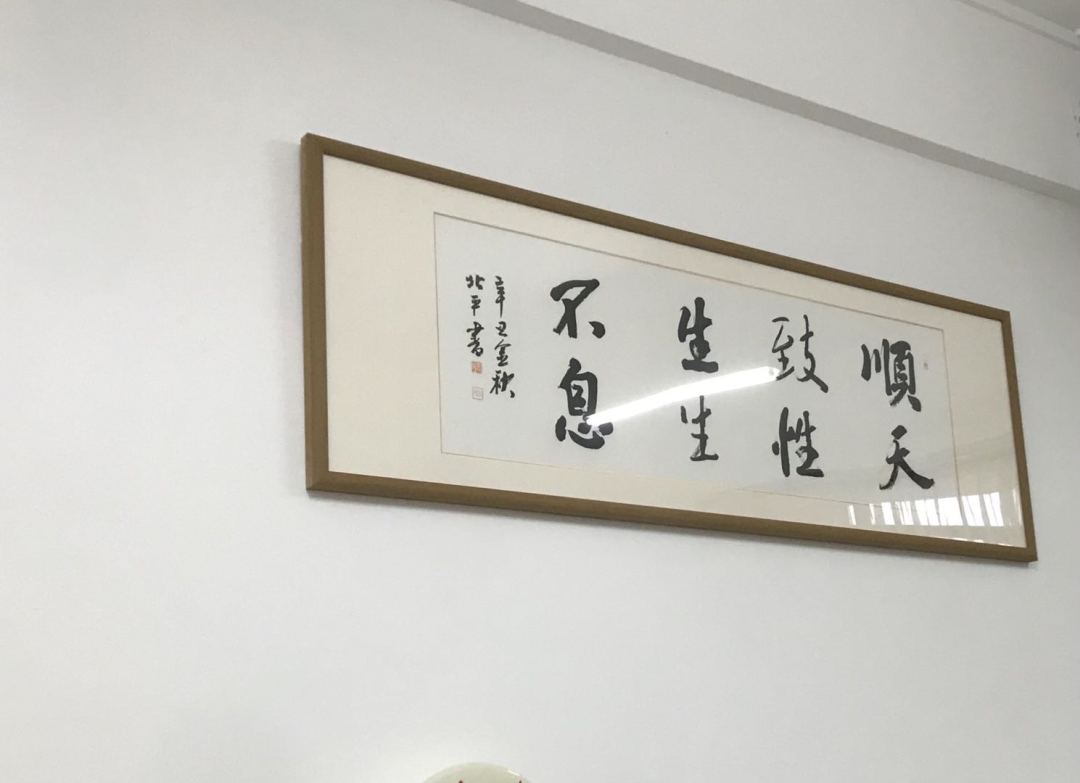 順天
致性
生生
不息
辛丑金秋
北平書